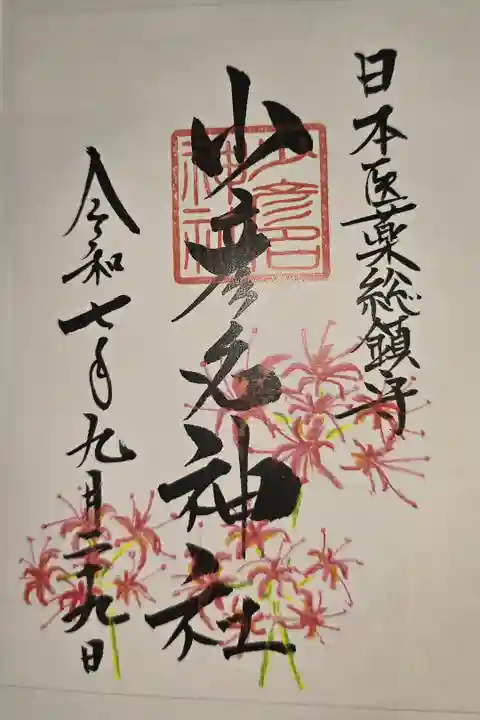 日本医薬総鎮守
少彦名神社
少彦名神社
令和七年九月二十九日